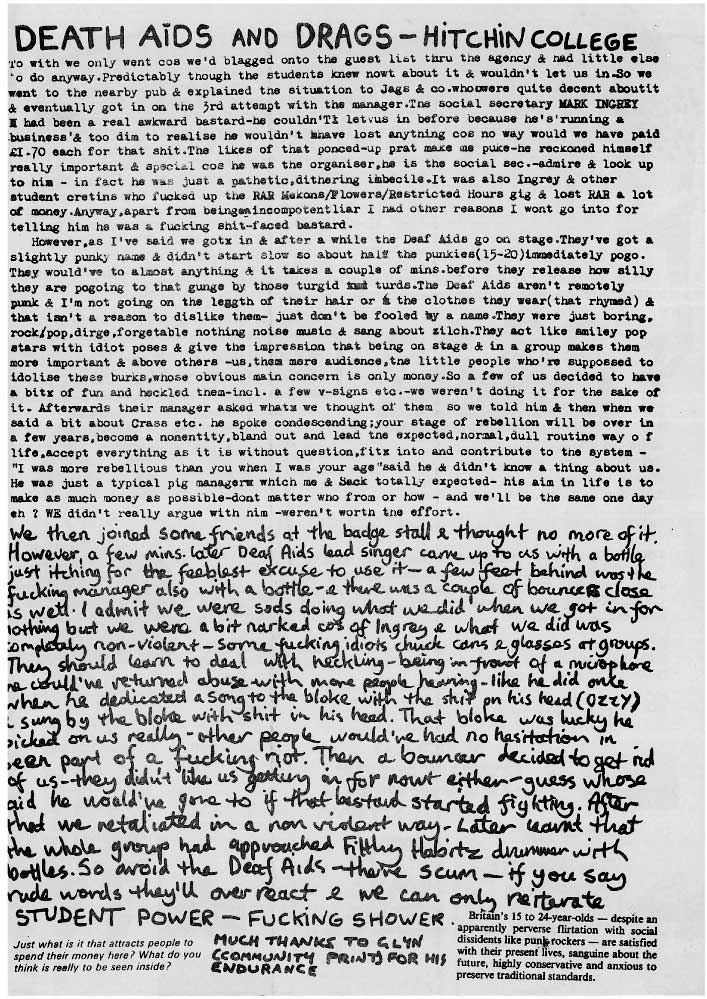 DEATH AIDS AND DRAGS - HITCHIN COLLEGE
To with we only went cos we'd blagged onto the guest list thru the agency & had little else
to do anyway.Predictably though the students knew nowt about it & wouldn't let us in.So we
went to the nearby pub & explained the situation to Jags & co.who were quite decent aboutit
& eventually got in on the 3rd attempt with the manager.The social secretary MARK INGREY
had been a real awkward bastard-he couldn't let us in before because he's'running a
business'& too dim to realise he wouldn't have lost anything cos no way would we have paid
£1.70 each for that shit.The likes of that ponced-up prat make me puke-he reckoned himself
really important & special cos he was the organiser,he is the social sec.-admire & look up
to him - in fact he was just a pathetic,dithering imbecile.It was also Ingrey & other
student cretins who fucked up the RAR Mekons/Flowers/Restricted Hours gig & lost RAR a lot
of money.Anyway,apart from being an incompotentliar I had other reasons I wont go into for
telling him he was a fucking shit-faced bastard.
However,as I've said we gotx in & after a while the Deaf Aids go on stage.They've got a
slightly punky name & didn't start slow so about half the punkies(15-20)immediately pogo.
They would've to almost anything & it takes a couple of mins.before they release how silly
they are pogoing to that gunge by those turgid turds.The Deaf Aids aren't remotely
punk & I'm not going on the length of their hair or the clothes they wear(that rhymed) &
that isn't a reason to dislike them- just don't be fooled by a name.They were just boring,
rock/pop,dirge,forgetable nothing noise music & sang about zilch.They act like smiley pop
stars with idiot poses & give the impression that being on stage & in a group makes them
more important & above others -us,them mere audience,the little people who're suppossed to
idolise these burks,whose obvious main concern is only money.So a few of us decided to have
a bitx of fun and heckled them-incl. a few v-signs etc.-we weren't doing it for the sake of
it. Afterwards their manager asked whatx we thought of them so we told him & then when we
said a bit about Crass etc. he spoke condescending;your stage of rebellion will be over in
a few years,become a nonentity,bland out and lead the expected,normal,dull routine way o f
life,accept everything as it is without question,fitx into and contribute to the system -
"I was more rebellious than you when I was your age"said he & didn't know a thing about us.
He was just a typical pig managerm which me & Sack totally expected- his aim in life is to
make as much money as possible-dont matter who from or how - and we'll be the same one day
eh ? WE didn't really argue with him -weren't worth the effort.
We then joined some friends at the badge stall & thought no more of it.
However, a few mins. later Deaf Aids lead singer came up to us with a bottle
just itching for the feeblest excuse to use it - a few feet behind was the
fucking manager also with a bottle - & there was a couple of bouncers close
as well. I admit we were sods doing what we did when we got in for
nothing but we were a bit narked cos of Ingrey & what we did was
completely non-violent - some fucking idiots chuck cans & glasses at groups.
They should learn to deal with heckling - being in front of a microphone
he could've returned abuse with more people hearing - like he did once
when he dedicated a song to the bloke with the shit on his head (OZZY)
& sung by the bloke with shit in his head. That bloke was lucky he
picked on us really - other people would've had no hasitation in
been part of a fucking riot. Then a bouncer decided to get rid
of us - they didn't like us getting in for nowt either - guess whose
aid he would've gone to if that bastard started fighting. After
that we retaliated in a non violent way. Later learnt that
the whole group had approuched Filthy Habitz drummer with
bottles. So avoid the Deaf Aids - there scum - if you say
rude words they'll over react & we can only reiterate
STUDENT POWER - FUCKING SHOWER.
Just what is it that attracts people to
spend their money here? What do you
think is really to be seen inside?
MUCH THANKS TO GLYN
(COMMUNITY PRINT) FOR HIS
ENDURANCE
Britain's 15 to 24-year-olds — despite an
apparently perverse flirtation with social
dissidents like punk rockers — are satisfied
with their present lives, sanguine about the
future, highly conservative and anxious to
preserve traditional standards.